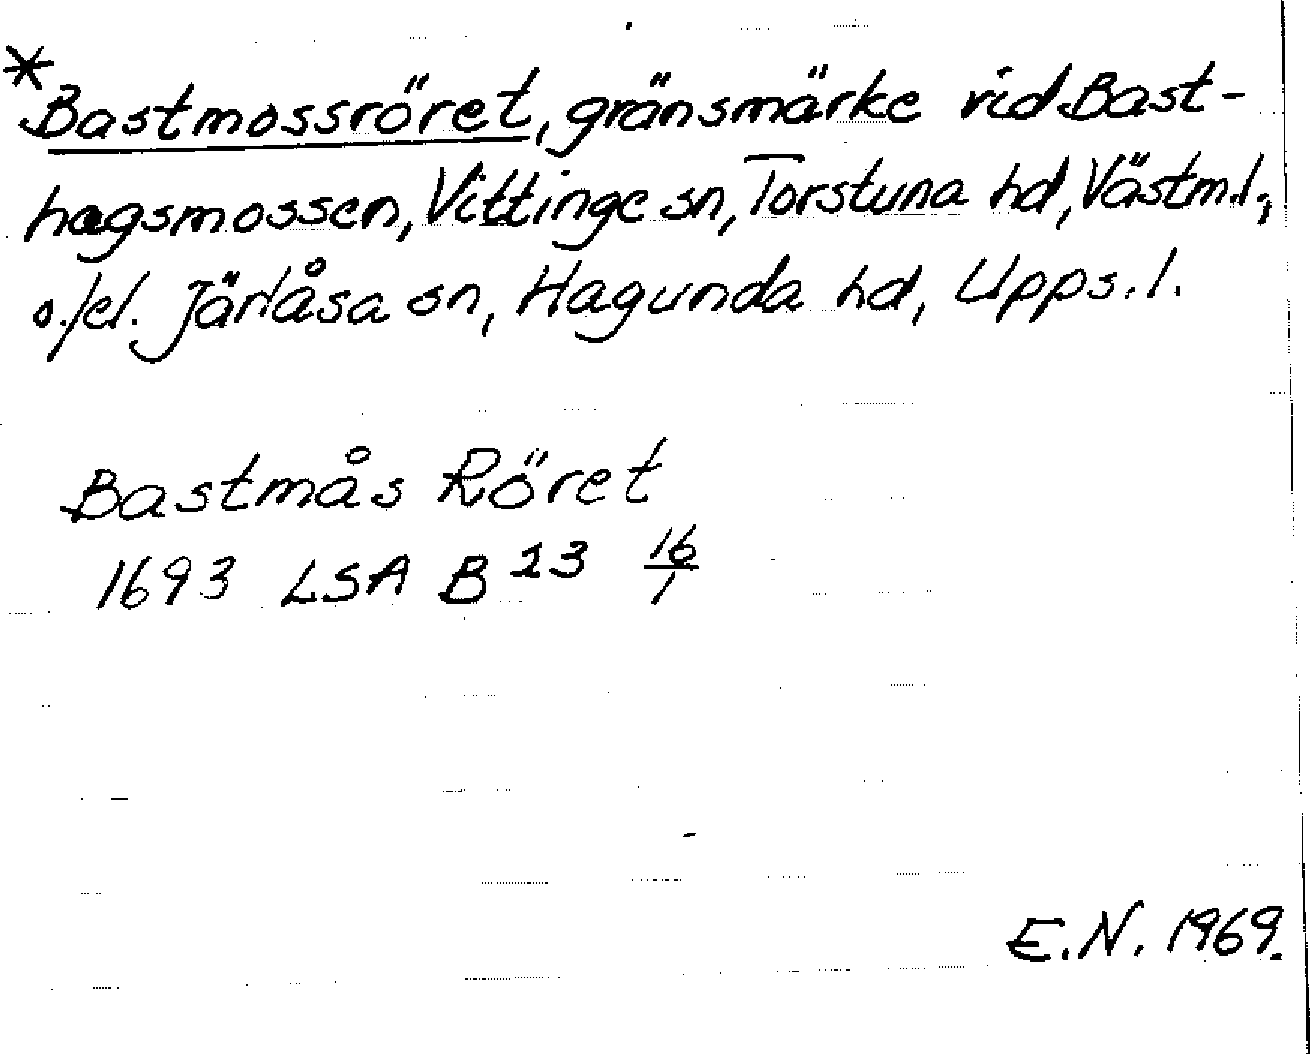 *Bastmossröret, gränsmärke vid Bast-
hagsmossen, Vittinge sn, Torstuna hd, Västm.l.,
Järlåsa sn, Hagunda hd, Upps.l.
Bastmås Röret
1693 LSA B 23 16/1
E.N. 1969.